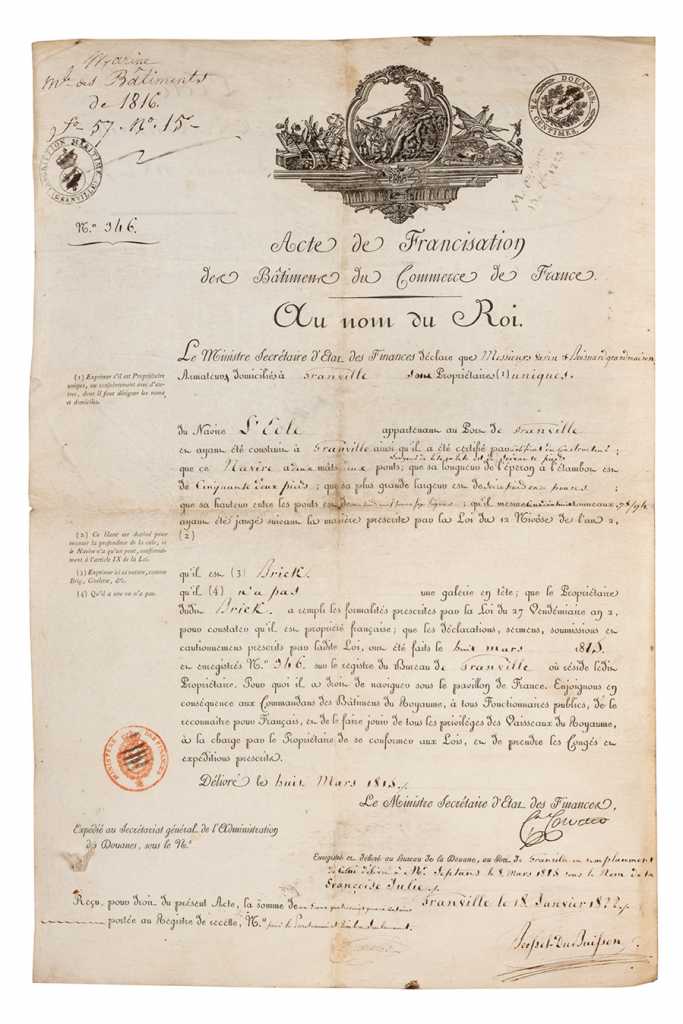 Marine
Mle des Bâtiments
de 1816.
fo 57. No. 15
DOUANES.
CENTIMES.
INSCRIPTION MARITIME
GRANVILLE
N.º 946.
Acte de Francisation
des Bâtimens du Commerce de France.
Au nom du Roi.
Le Ministre Secrétaire d'Etat des Finances déclare que Messieurs
Armateurs domiciliés à Granville sont Propriétaires (1) uniques.
(1) Exprimer s'il est Propriétaire
unique, ou conjointement avec d'au-
tres, dont il faut désigner les noms
et domiciles.
du Navire L'Eole appartenant au Port de Granville
et ayant été construit à Granville ainsi qu'il a été certifié par
que ce Navire a deux mâts, deux ponts; que sa longueur de l'éperon à l'étambot est
de Cinquante deux pieds; que sa plus grande largeur est de
que sa hauteur entre les ponts est de qu'il mesure tonneaux
ayant été jaugé suivant la manière prescrite par la Loi du 12 Nivôse de l'an 2,
(2)
(2) Ce blanc est destiné pour
énoncer la profondeur de la cale, si
le Navire n'a qu'un pont, conformé-
ment à l'article IX de la Loi.
(3) Exprimer ici sa nature, comme
Brig, Goélette, &c.
(4) Qu'il a ou n'a pas.
qu'il est (3) Brick.
qu'il (4) n'a pas une galerie en tête; que le Propriétaire
dudit Brick. a rempli les formalités prescrites par la Loi du 27 Vendémiaire an 2,
pour constater qu'il est propriété française; que les déclarations, sermens, soumissions et
cautionnemens prescrits par ladite Loi, ont été faits le huit mars 1818.
et enregistrés N.º 946 sur le registre du Bureau de Granville où réside ledit
Propriétaire. Pour quoi il a droit de naviguer sous le pavillon de France. Enjoignons en
conséquence aux Commandans des Bâtimens du Royaume, à tous Fonctionnaires publics, de le
reconnaître pour Français, et de le faire jouir de tous les privilèges des Vaisseaux du Royaume,
à la charge par le Propriétaire de se conformer aux Lois, et de prendre les Congés et
expéditions prescrits.
MINISTERE DES FINANCES
Délivré le huit Mars 1818.
Le Ministre Secrétaire d'Etat des Finances,
Expédié au Secrétariat général de l'Administration
des Douanes, sous le N.º
Enregistré et délivré au Bureau de la Douane, au Port de Granville en remplacement
de celui délivré à Mr. le 8 Mars 1818 sous le Nom de la
Françoise Julie
Granville le 18 Janvier 1822
Reçu, pour droit du présent Acte, la somme de
portée au Registre de recette, N.º